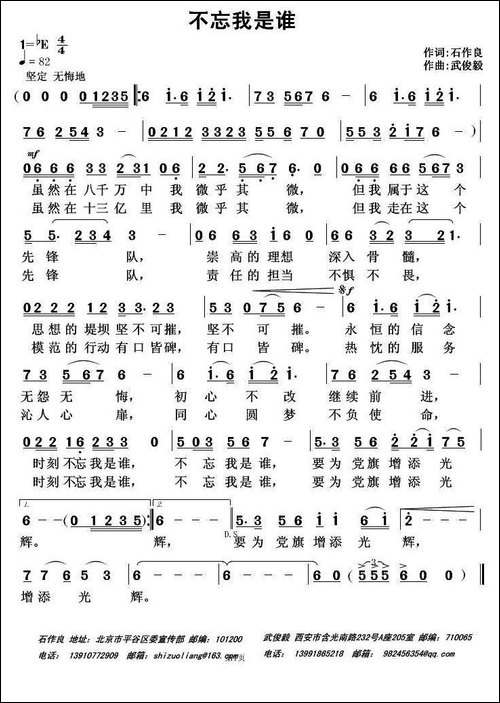 不忘我是谁
1=♭E 4/4
♩=82
作词:石作良
作曲:武俊毅
坚定 无悔地
(0 0 0 01235 ‖: 6 i·6 i2 i | 73 5676 - | 6 i·6 i2 i |
76 2543 - | 0212 3323 5576 0 | 553 2i76 -) |
mf
0666 33 231 06 | 22· 567·6 - | 06 66 5673 |
虽然在 八千 万 中 我 微乎 其 微, 但我 属于这 个
虽然在 十三 亿 里 我 微乎 其 微, 但我 走在这 个
5 5· 223 - | 06 63 i6 0 | 66 323 21· |
先锋 队, 崇高的理想 深入 骨 髓,
先锋 队, 责任的担当 不惧 不 畏,
𝄋f
0222 123 3·23 | 53 0756 - | 6 i·6 i2 i |
思想的 堤坝 坚不可摧, 坚不 可 摧。 永 恒的 信 念
模范的 行动 有口皆碑, 有口 皆 碑。 热 忱的 服 务
73 5676 - | i i·6 53 3 | 76 2543 - |
无怨 无 悔, 初 心 不 改 继续 前 进,
沁人 心 扉, 同 心 圆 梦 不负 使 命,
022 16 233 0 | 503 567· | 5·3 56 22i 75 |
时刻 不忘 我是谁, 不 忘我是谁, 要为 党旗 增添 光
时刻 不忘 我是谁, 不 忘我是谁, 要为 党旗 增添 光
1. 2.
6 - - (0 1235) :‖ 6 - - - | 5·3 56 i i | i65i | 2 - - - |
辉。 辉, D.S. 要为 党旗 增添 光 辉,
77 653 | 6 - - - | 6 - - - | (555 666 0) ‖
增添 光 辉。
石作良 地址: 北京市平谷区委宣传部 邮编: 101200
武俊毅 西安市含光南路232号A座205室 邮编: 710065
电话: 13910772909 邮箱: shizuoliang@163.com
电话: 13991865218 邮箱: 982456354@qq.com